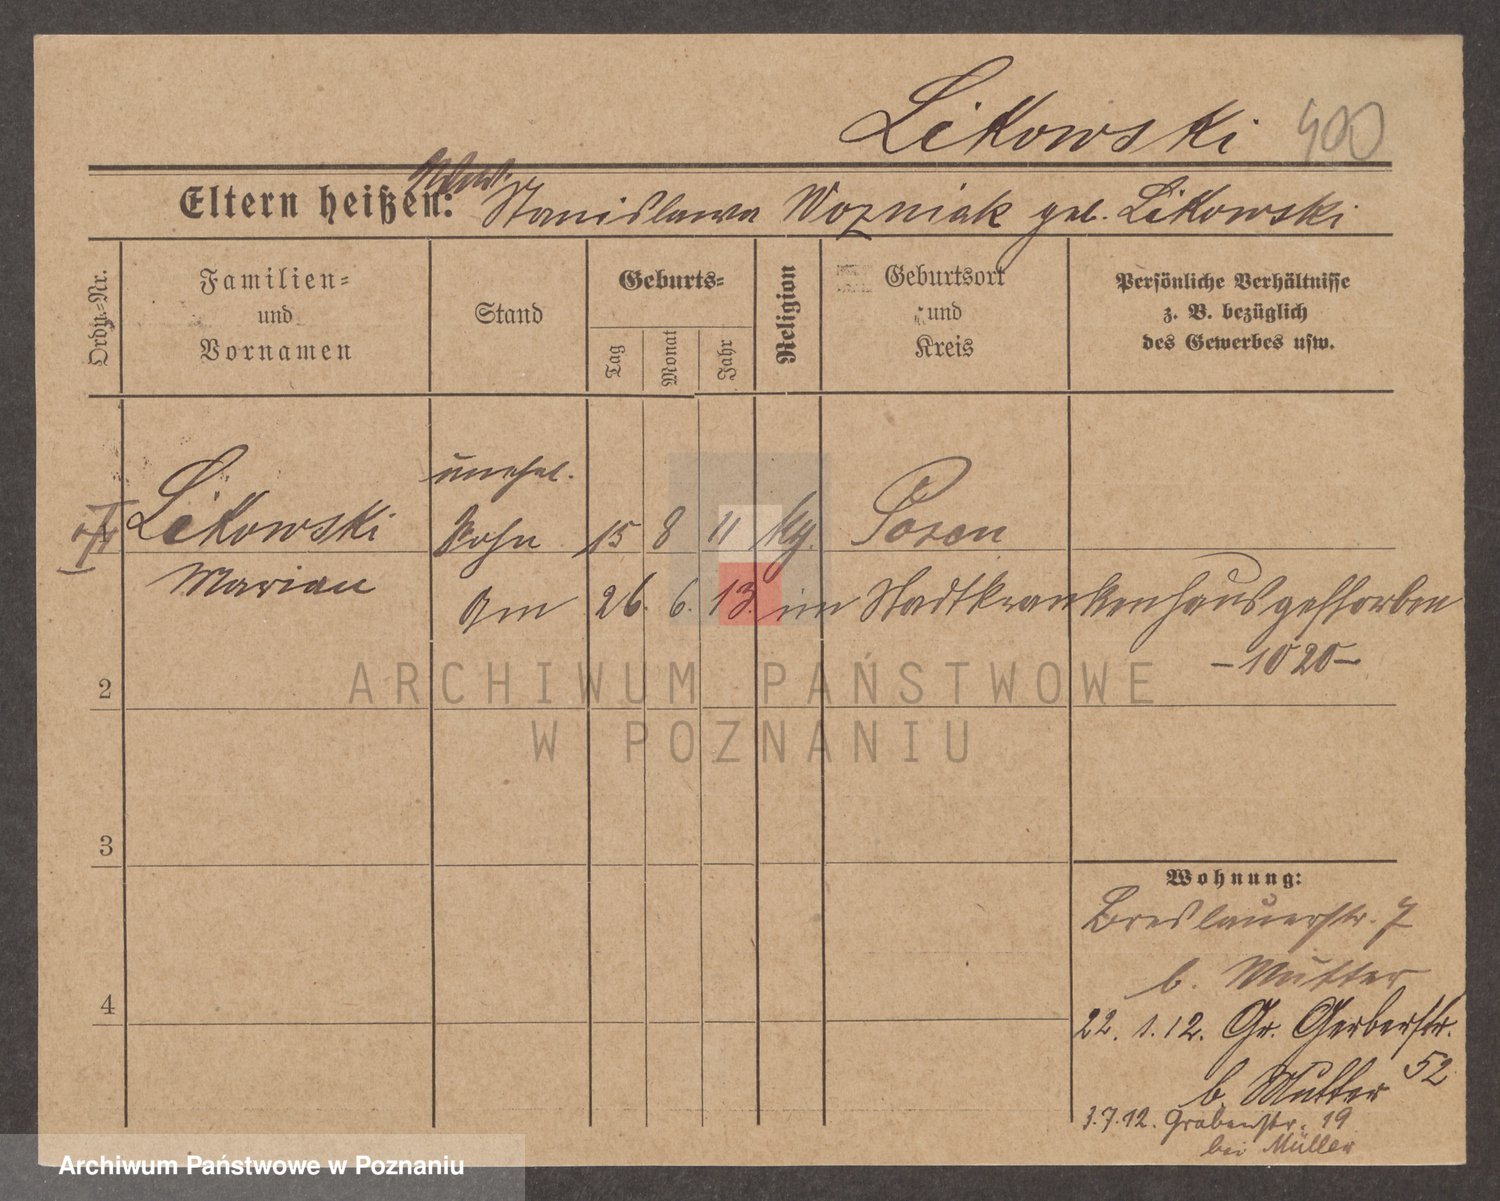 Likowski 400
Eltern heißen: Stanislawa Wozniak gel. Likowski
Ordn.-Nr.
Familien-
und
Vornamen
Stand
Geburts-
Tag
Monat
Jahr
Religion
Geburtsort
und
Kreis
Persönliche Verhältnisse
z. B. bezüglich
des Gewerbes usw.
unehel.
Likowski Sohn 15 8 11 kg. Posen
Marian
am 26. 6. 13. im Stadtkrankenhaus gestorben
- 1020 -
2
3
4
Wohnung:
Breslauerstr. 7
b. Mutter
22. 1. 12. Gr. Gerberstr.
52
b. Mutter
3.7.12. Grabenstr. 19
bei Müller
ARCHIWUM PAŃSTWOWE
W POZNANIU
Archiwum Państwowe w Poznaniu